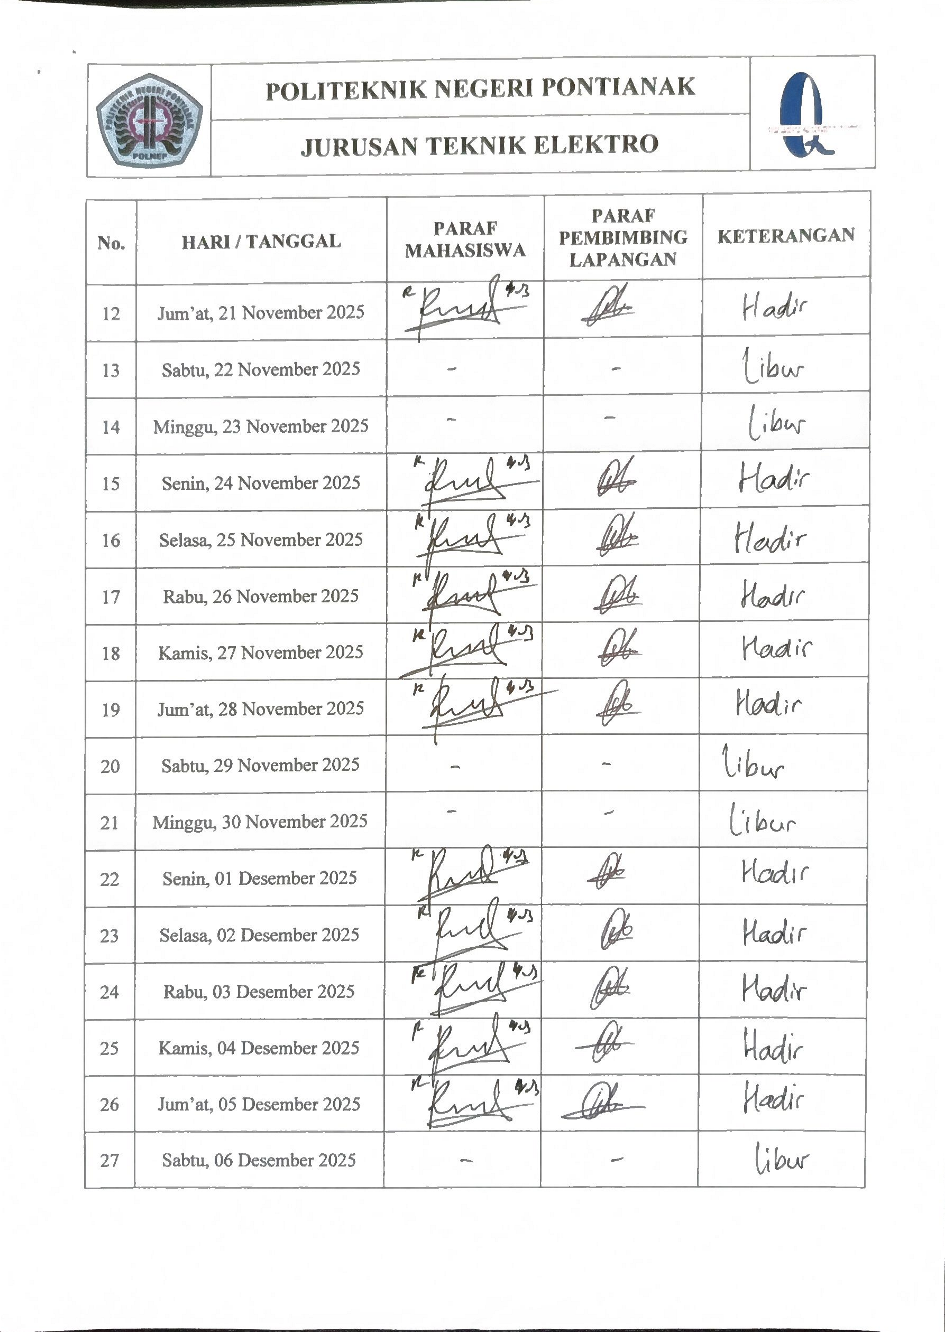 POLITEKNIK NEGERI PONTIANAK
POLNEP
POLITEKNIK NEGERI PONTIANAK
JURUSAN TEKNIK ELEKTRO
No. HARI / TANGGAL PARAF MAHASISWA PARAF PEMBIMBING LAPANGAN KETERANGAN
12 Jum'at, 21 November 2025 Hadir
13 Sabtu, 22 November 2025 - - Libur
14 Minggu, 23 November 2025 - - Libur
15 Senin, 24 November 2025 Hadir
16 Selasa, 25 November 2025 Hadir
17 Rabu, 26 November 2025 Hadir
18 Kamis, 27 November 2025 Hadir
19 Jum'at, 28 November 2025 Hadir
20 Sabtu, 29 November 2025 - - Libur
21 Minggu, 30 November 2025 - - Libur
22 Senin, 01 Desember 2025 Hadir
23 Selasa, 02 Desember 2025 Hadir
24 Rabu, 03 Desember 2025 Hadir
25 Kamis, 04 Desember 2025 Hadir
26 Jum'at, 05 Desember 2025 Hadir
27 Sabtu, 06 Desember 2025 - - Libur